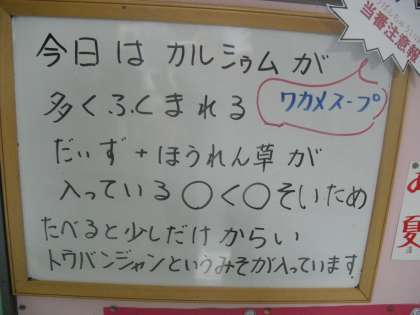 今日は カルシウムが
多くふくまれる ワカメスープ
だいず+ほうれん草が
入っている ○く○そいため
たべると少しだけからい
トウバンジャンというみそが入っています。
当番注意報
夏